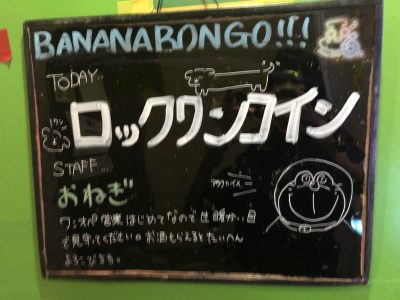 BANANABONGO!!!
TODAY..
ロックワンコイン
STAFF...
おねぎ
ワンオペ営業はじめてなので生暖かい目
で見守ってください。お酒もらえるとたいへん
よろこびます。